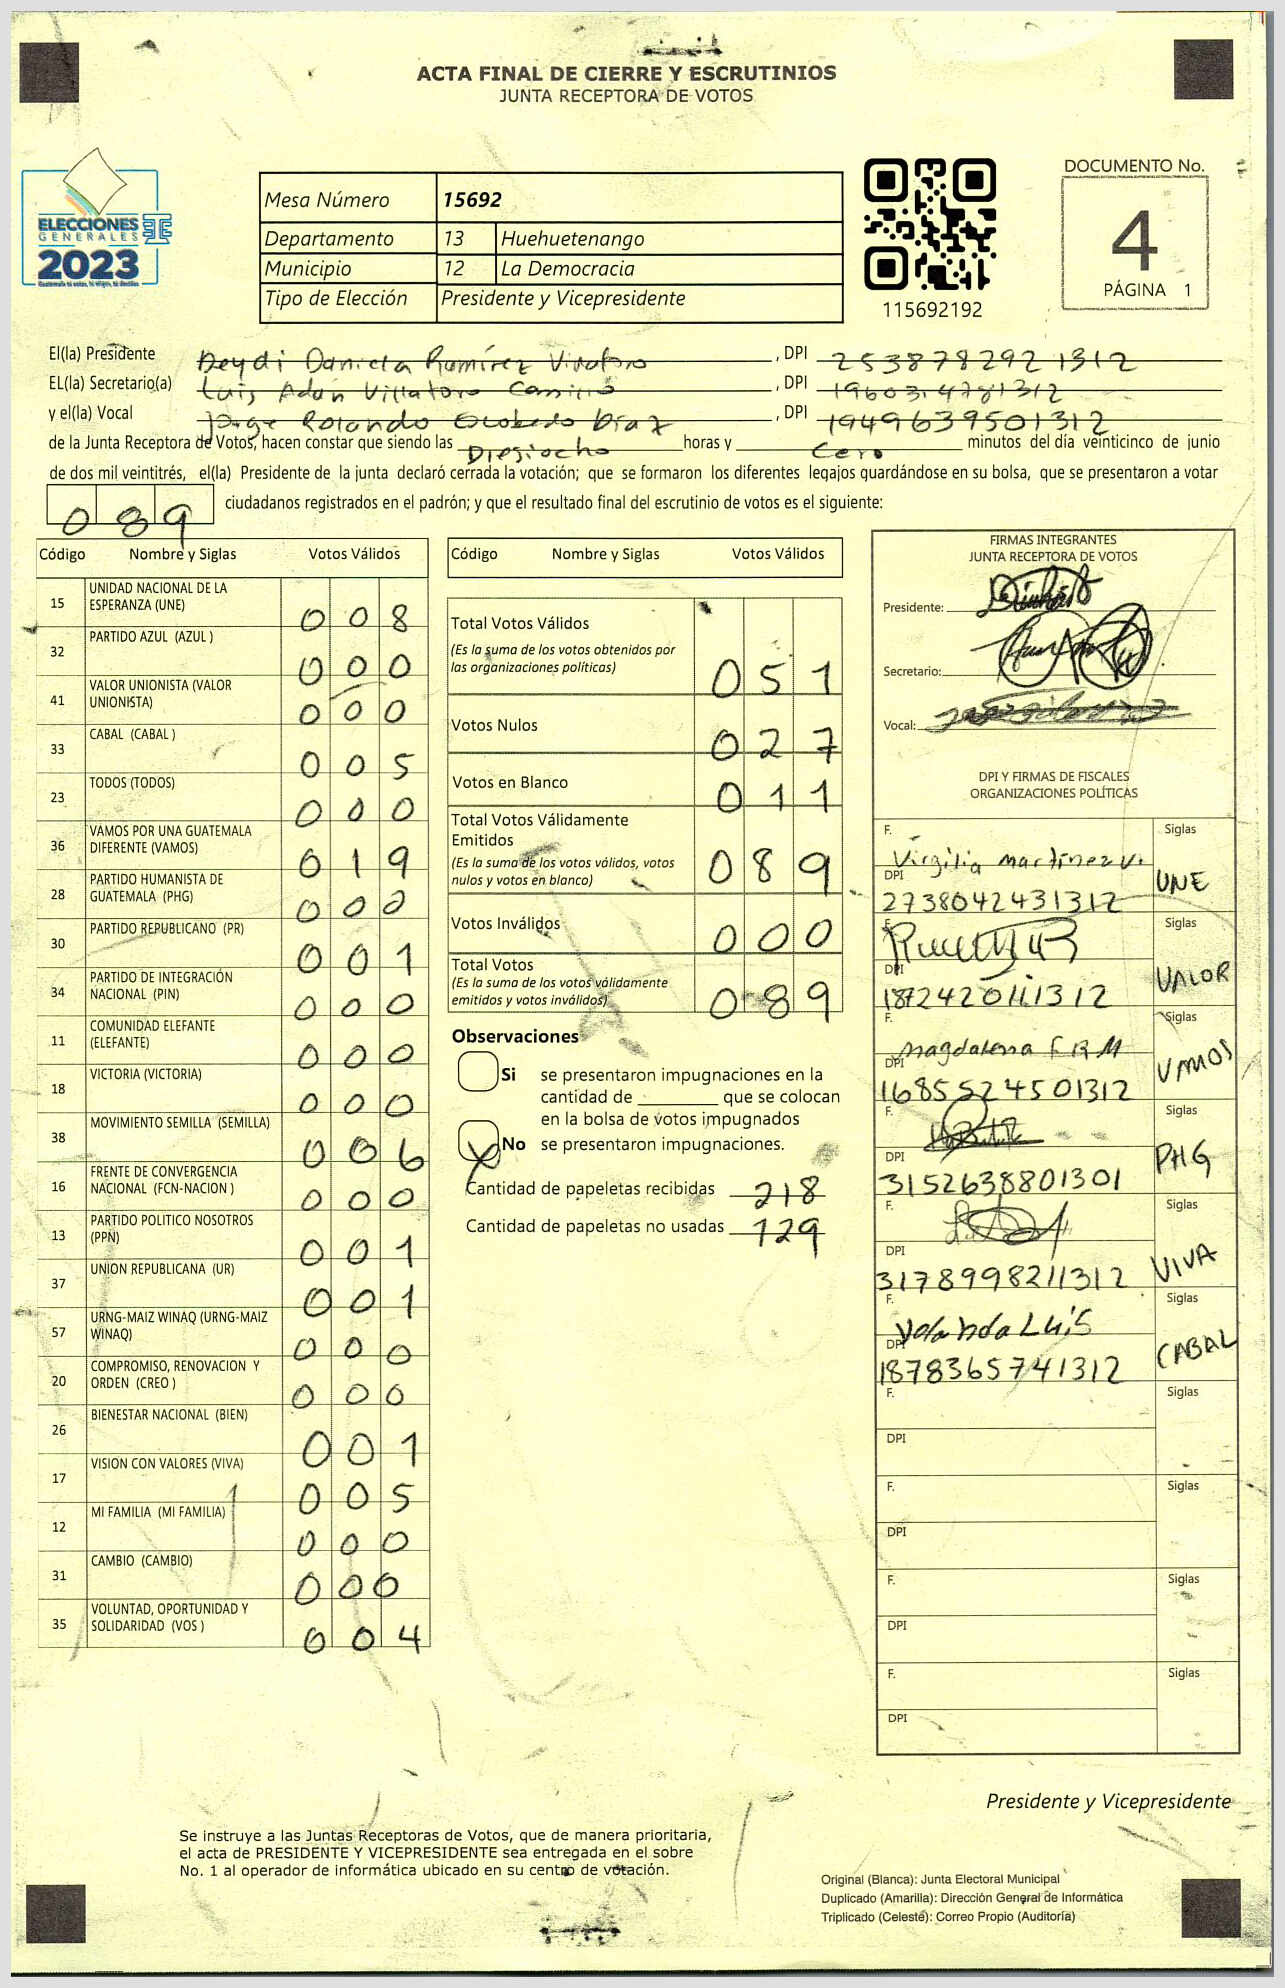 ACTA FINAL DE CIERRE Y ESCRUTINIOS
JUNTA RECEPTORA DE VOTOS
ELECCIONES
GENERALES
2023
Mesa Número 15692
Departamento 13 Huehuetenango
Municipio 12 La Democracia
Tipo de Elección Presidente y Vicepresidente
115692192
DOCUMENTO No.
4
PÁGINA 1
El(la) Presidente Deydi Daniela Ramírez , DPI 2538782921312
EL(la) Secretario(a) Luis Adán Villatoro Camilo , DPI 1960314781312
y el(la) Vocal Jorge Rolando Escobedo Díaz , DPI 1949639501312
de la Junta Receptora de Votos, hacen constar que siendo las Diesiocho horas y Cero minutos del día veinticinco de junio
de dos mil veintitrés, el(la) Presidente de la junta declaró cerrada la votación; que se formaron los diferentes legajos guardándose en su bolsa, que se presentaron a votar
089 ciudadanos registrados en el padrón; y que el resultado final del escrutinio de votos es el siguiente:
Código Nombre y Siglas Votos Válidos
15 UNIDAD NACIONAL DE LA ESPERANZA (UNE) 008
32 PARTIDO AZUL (AZUL ) 000
41 VALOR UNIONISTA (VALOR UNIONISTA) 000
33 CABAL (CABAL ) 005
23 TODOS (TODOS) 000
36 VAMOS POR UNA GUATEMALA DIFERENTE (VAMOS) 019
28 PARTIDO HUMANISTA DE GUATEMALA (PHG) 000
30 PARTIDO REPUBLICANO (PR) 001
34 PARTIDO DE INTEGRACIÓN NACIONAL (PIN) 000
11 COMUNIDAD ELEFANTE (ELEFANTE) 000
18 VICTORIA (VICTORIA) 000
38 MOVIMIENTO SEMILLA (SEMILLA) 006
16 FRENTE DE CONVERGENCIA NACIONAL (FCN-NACION ) 000
13 PARTIDO POLITICO NOSOTROS (PPN) 001
37 UNION REPUBLICANA (UR) 001
57 URNG-MAIZ WINAQ (URNG-MAIZ WINAQ) 000
20 COMPROMISO, RENOVACION Y ORDEN (CREO ) 000
26 BIENESTAR NACIONAL (BIEN) 001
17 VISION CON VALORES (VIVA) 005
12 MI FAMILIA (MI FAMILIA) 000
31 CAMBIO (CAMBIO) 000
35 VOLUNTAD, OPORTUNIDAD Y SOLIDARIDAD (VOS ) 004
Código Nombre y Siglas Votos Válidos
Total Votos Válidos
(Es la suma de los votos obtenidos por
las organizaciones políticas) 051
Votos Nulos 027
Votos en Blanco 011
Total Votos Válidamente
Emitidos
(Es la suma de los votos válidos, votos
nulos y votos en blanco) 089
Votos Inválidos 000
Total Votos
(Es la suma de los votos válidamente
emitidos y votos inválidos) 089
Observaciones
Si se presentaron impugnaciones en la
cantidad de ________ que se colocan
en la bolsa de votos impugnados
X No se presentaron impugnaciones.
Cantidad de papeletas recibidas 218
Cantidad de papeletas no usadas 129
FIRMAS INTEGRANTES
JUNTA RECEPTORA DE VOTOS
Presidente:
Secretario:
Vocal:
DPI Y FIRMAS DE FISCALES
ORGANIZACIONES POLÍTICAS
F. Virgilia Martínez V. Siglas
DPI 2738042431312 UNE
F. Siglas
DPI 1872420111312 VALOR
F. Magdalena F R M Siglas
DPI 1685524501312 VAMOS
F. Siglas
DPI 3152638801301 PHG
F. Siglas
DPI 3178998211312 VIVA
F. Yolanda Luis Siglas
DPI 1878365741312 CABAL
F. Siglas
DPI
F. Siglas
DPI
F. Siglas
DPI
F. Siglas
DPI
Presidente y Vicepresidente
Se instruye a las Juntas Receptoras de Votos, que de manera prioritaria,
el acta de PRESIDENTE Y VICEPRESIDENTE sea entregada en el sobre
No. 1 al operador de informática ubicado en su centro de votación.
Original (Blanca): Junta Electoral Municipal
Duplicado (Amarilla): Dirección General de Informática
Triplicado (Celeste): Correo Propio (Auditoría)